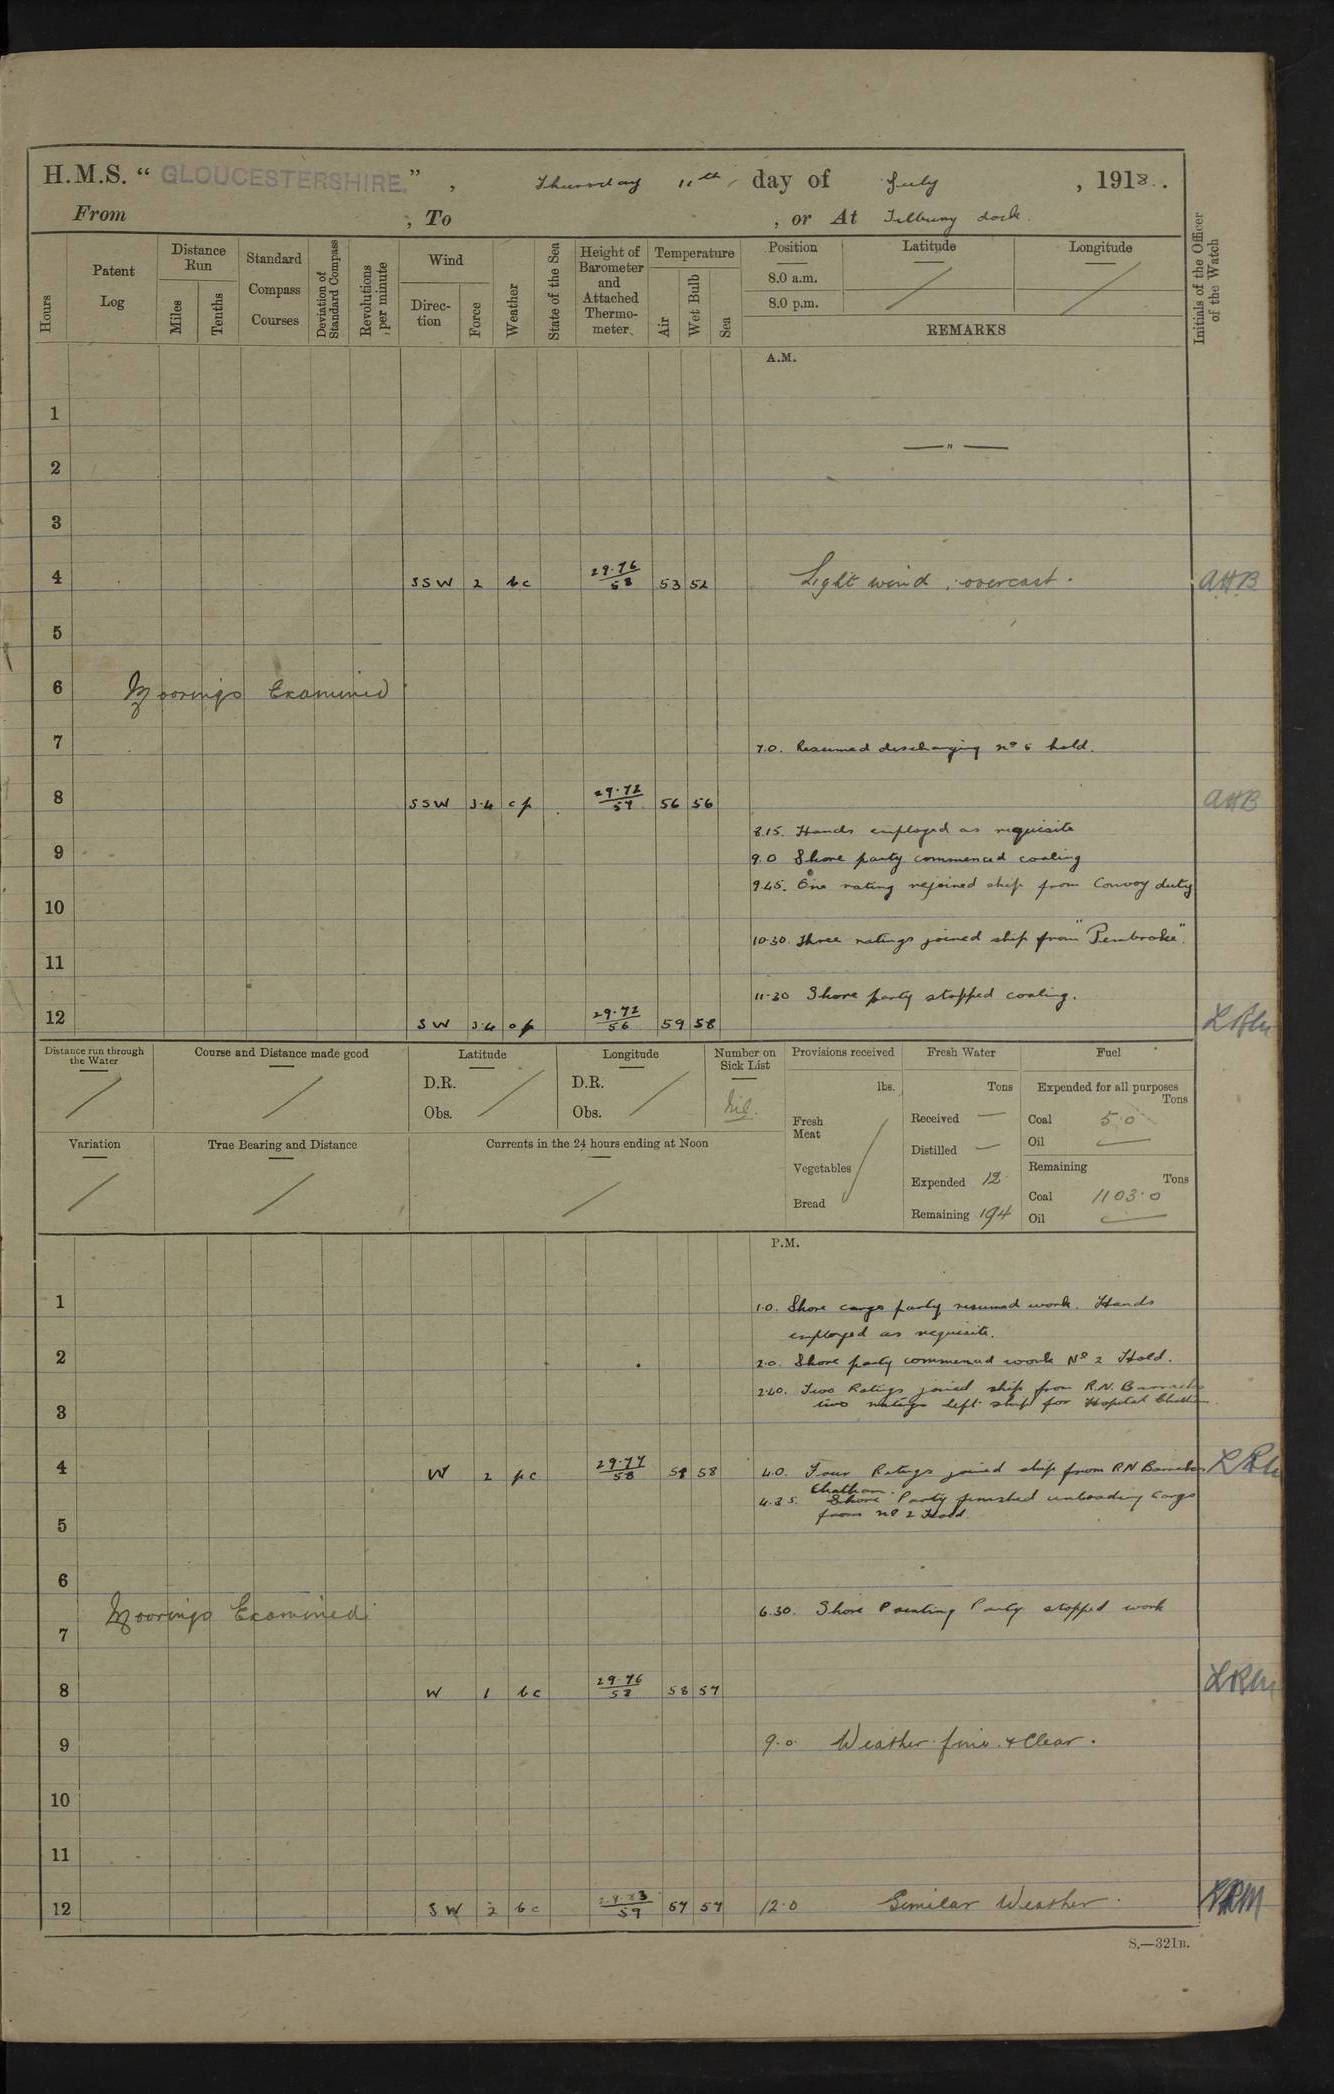 H.M.S. “ GLOUCESTERSHIRE. ” , Thursday 11th , day of July , 1918. .
From , To , or At Tilbury dock.
Hours
Patent Log
Distance Run
Miles
Tenths
Standard Compass Courses
Deviation of Standard Compass
Revolutions per minute
Wind
Direc-tion
Force
Weather
State of the Sea
Height of Barometer and Attached Thermo-meter
Temperature
Air
Wet Bulb
Sea
Position
8.0 a.m.
8.0 p.m.
Latitude
Longitude
REMARKS
Initials of the Officer of the Watch
A.M.
1
— " —
2
3
4 SSW 2 bc 29.76 / 58 53 52 Light wind , overcast . AHB
5
6 Moorings Examined
7 7.0. Resumed discharging No 6 hold.
8 SSW 3.4 cp 29.72 / 57 56 56 AHB
8.15. Hands employed as requisite
9 9.0 Shore party commenced coaling
9.45. One rating rejoined ship from Convoy duty
10
10.30. Three ratings joined ship from "Pembroke".
11
11.30 Shore party stopped coaling.
12 SW 3.4 op 29.72 / 56 59 58
Distance run through the Water
Course and Distance made good
Latitude
D.R.
Obs.
Longitude
D.R.
Obs.
Number on Sick List
Nil.
Provisions received
lbs.
Fresh Meat
Vegetables
Bread
Fresh Water
Tons
Received —
Distilled —
Expended 12
Remaining 194
Fuel
Expended for all purposes
Tons
Coal 5.0
Oil —
Remaining
Tons
Coal 1103.0
Oil —
Variation
True Bearing and Distance
Currents in the 24 hours ending at Noon
P.M.
1 1.0. Shore cargo party resumed work. Hands
employed as requisite.
2 2.0. Shore party commenced work No 2 Hold.
2.40. Two Ratings joined ship from R.N. Barracks
two ratings left ship for Hospital Chatham.
3
4 W 2 pc 29.77 / 58 58 4.0. Four Ratings joined ship from RN Barracks
Chatham.
4.35. Shore Party finished unloading Cargo
from No 2 Hold.
5
6
Moorings Examined 6.30. Shore Painting Party stopped work
7
8 W 1 bc 29.76 / 58 58 57
9 9.0 Weather fine & Clear .
10
11
12 SW 2 bc 59 57 57 12.0 Similar Weather .
S.—321B.